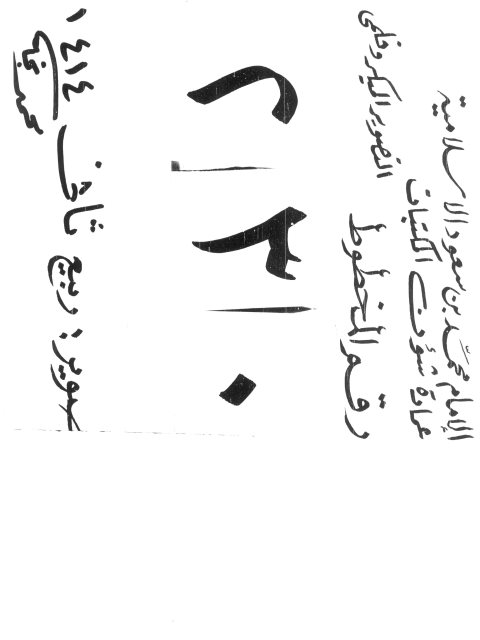 الإمام محمد بن سعود الاسلامية
عمادة شؤون المكتبات
التصوير الميكروفلمي
رقم المخطوط
٢١٣١٠
صوير: ربيع ١٤١٤